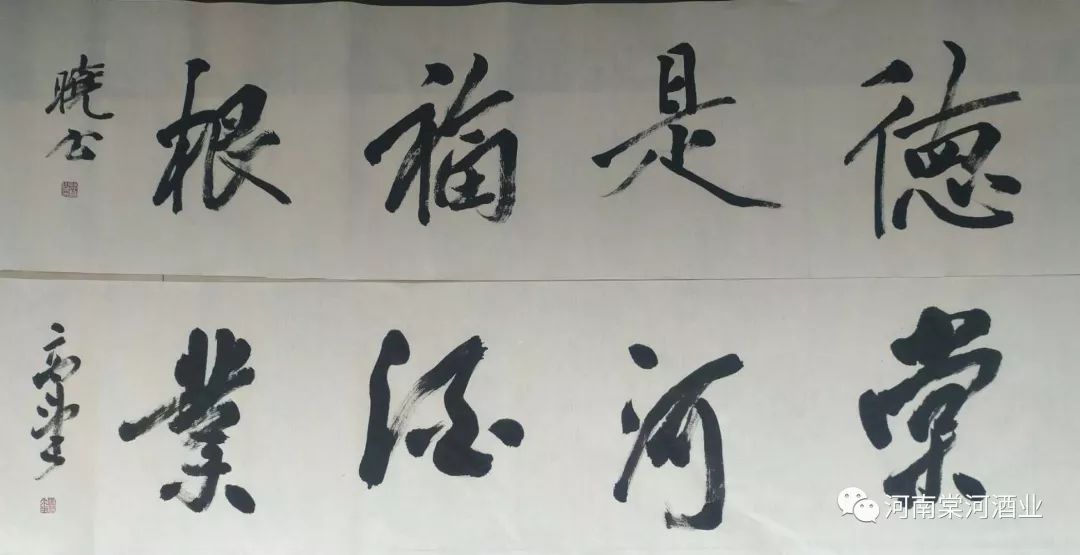 德是福根
晓云
棠河酒业
河南棠河酒业